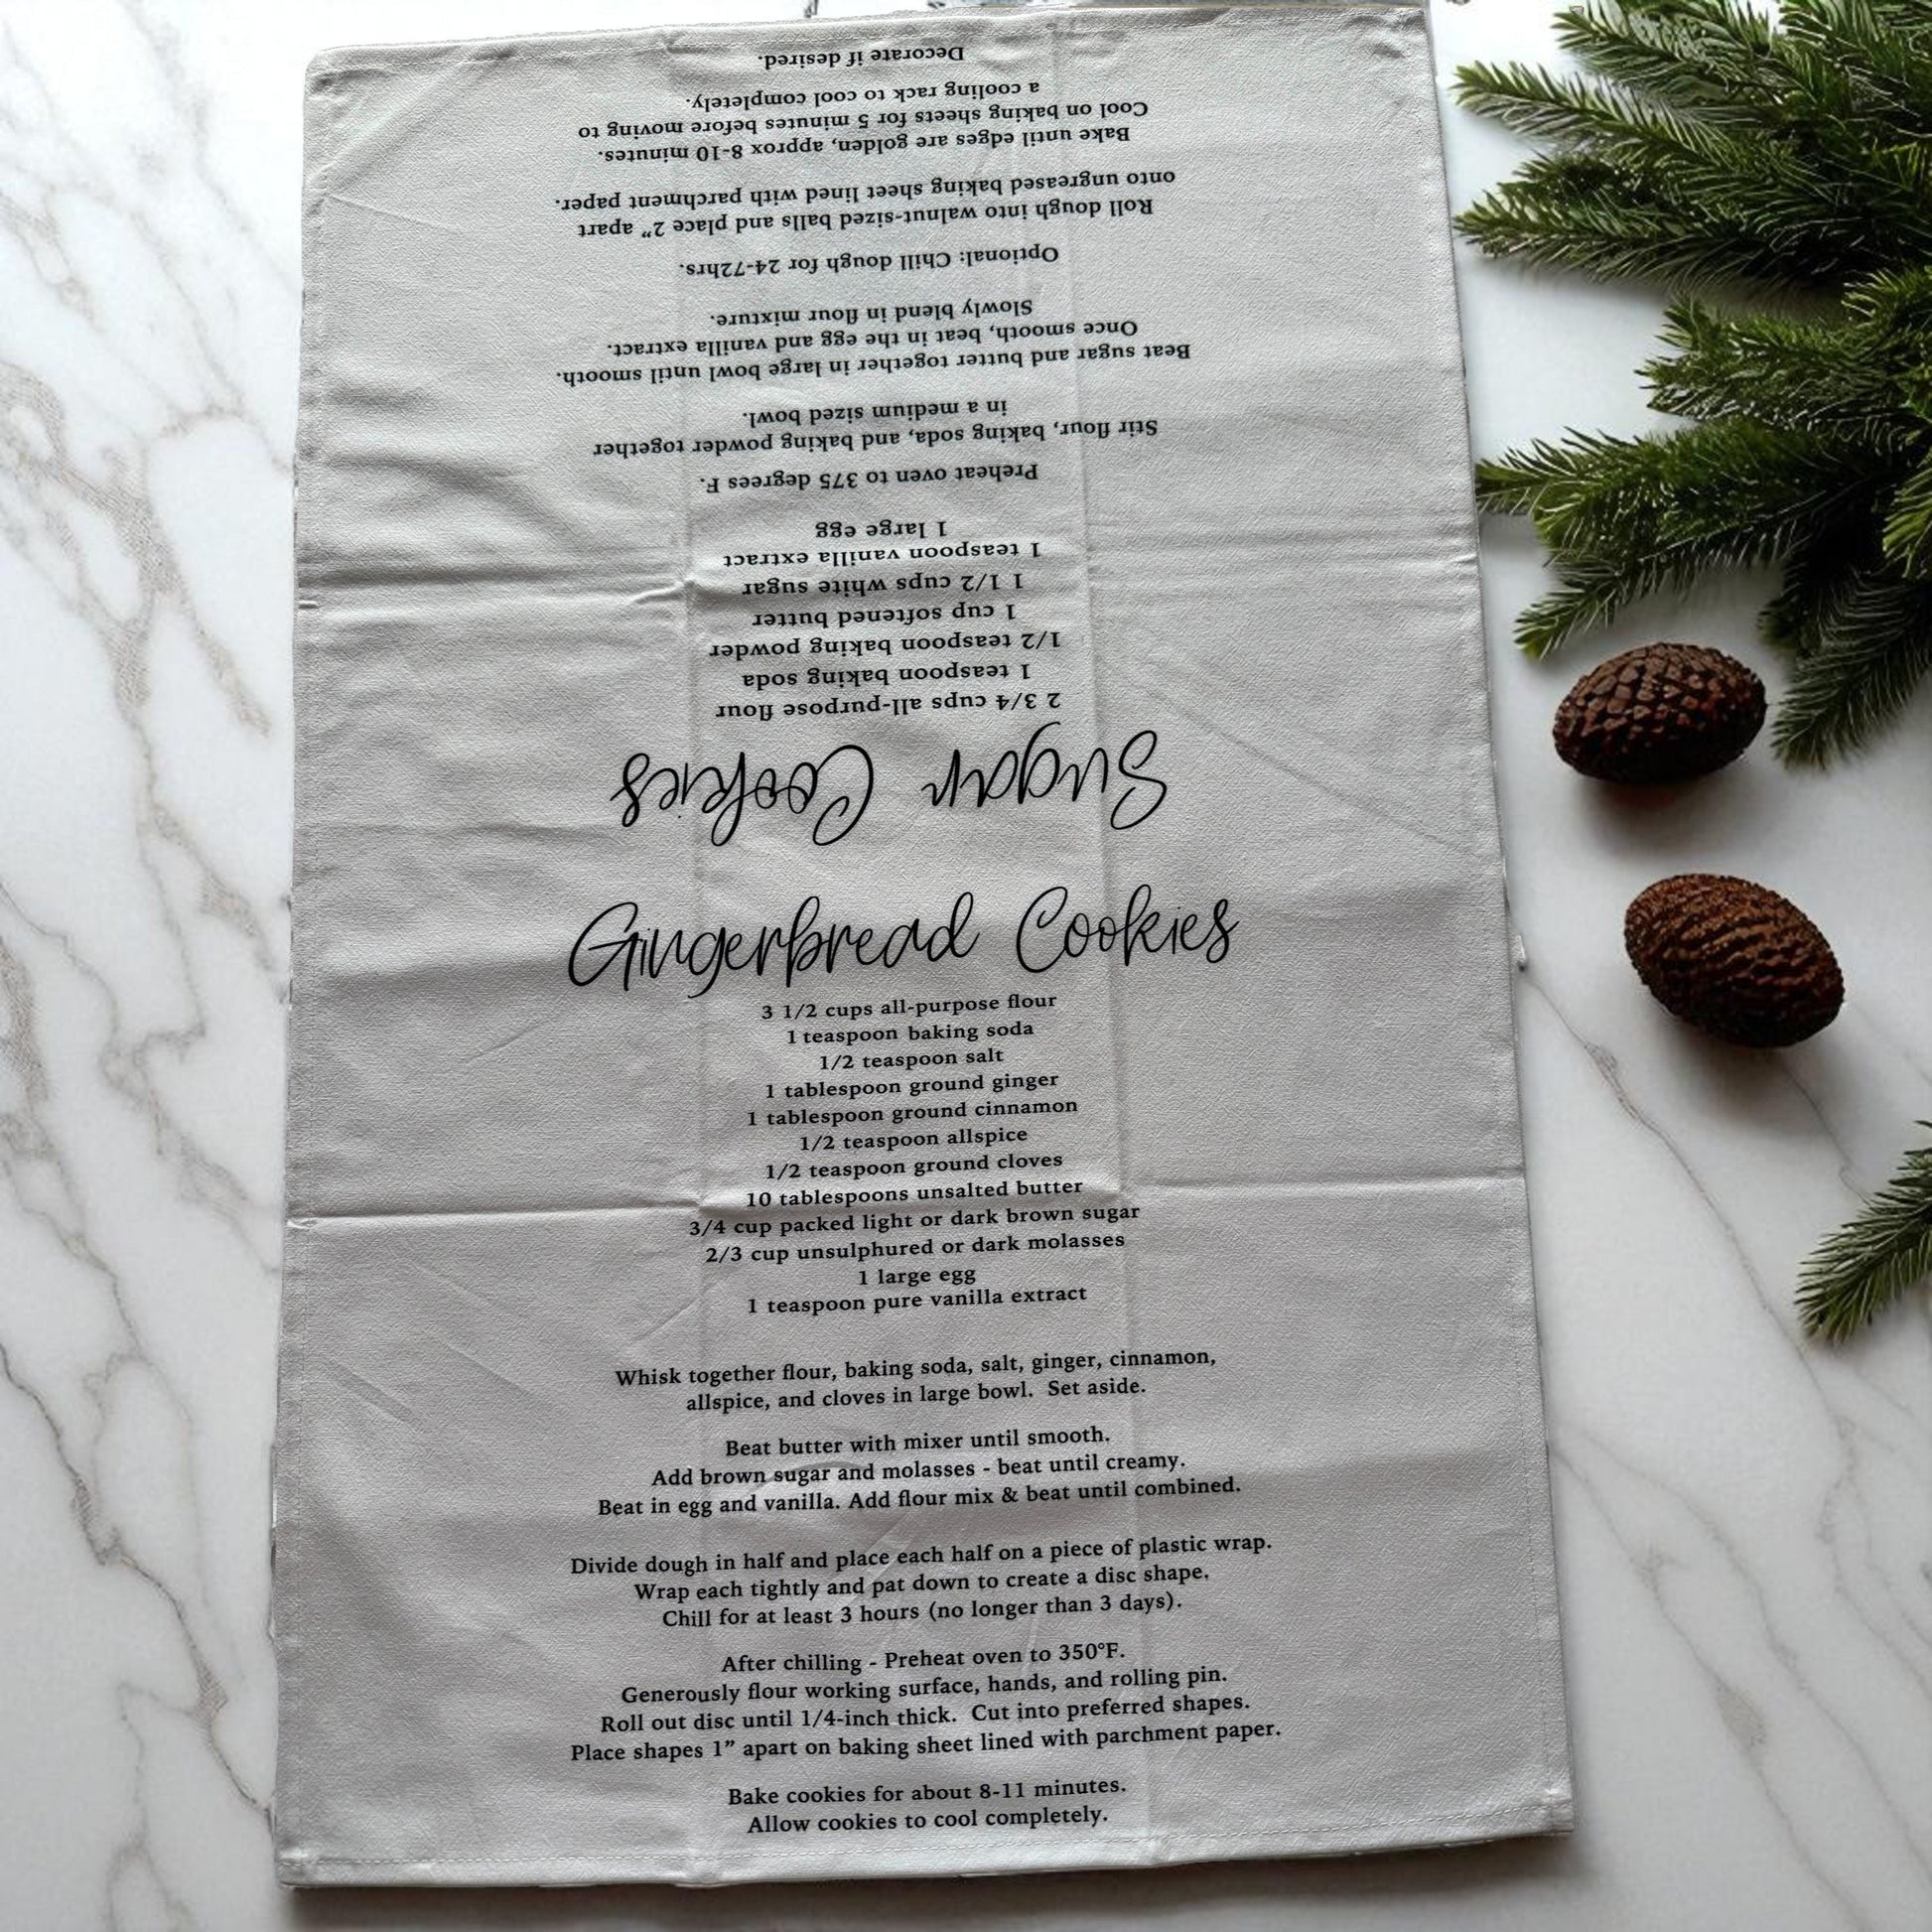 Gingerbread Cookies
3 1/2 cups all-purpose flour
1 teaspoon baking soda
1/2 teaspoon salt
1 tablespoon ground ginger
1 tablespoon ground cinnamon
1/2 teaspoon allspice
1/2 teaspoon ground cloves
10 tablespoons unsalted butter
3/4 cup packed light or dark brown sugar
2/3 cup unsulphured or dark molasses
1 large egg
1 teaspoon pure vanilla extract
Whisk together flour, baking soda, salt, ginger, cinnamon,
allspice, and cloves in large bowl. Set aside.
Beat butter with mixer until smooth.
Add brown sugar and molasses - beat until creamy.
Beat in egg and vanilla. Add flour mix & beat until combined.
Divide dough in half and place each half on a piece of plastic wrap.
Wrap each tightly and pat down to create a disc shape.
Chill for at least 3 hours (no longer than 3 days).
After chilling - Preheat oven to 350°F.
Generously flour working surface, hands, and rolling pin.
Roll out disc until 1/4-inch thick. Cut into preferred shapes.
Place shapes 1” apart on baking sheet lined with parchment paper.
Bake cookies for about 8-11 minutes.
Allow cookies to cool completely.
Sugar Cookies
2 3/4 cups all-purpose flour
1 teaspoon baking soda
1/2 teaspoon baking powder
1 cup softened butter
1 1/2 cups white sugar
1 teaspoon vanilla extract
1 large egg
Preheat oven to 375 degrees F.
Stir flour, baking soda, and baking powder together
in a medium sized bowl.
Beat sugar and butter together in large bowl until smooth.
Once smooth, beat in the egg and vanilla extract.
Slowly blend in flour mixture.
Optional: Chill dough for 24-72hrs.
Roll dough into walnut-sized balls and place 2” apart
onto ungreased baking sheet lined with parchment paper.
Bake until edges are golden, approx 8-10 minutes.
Cool on baking sheets for 5 minutes before moving to
a cooling rack to cool completely.
Decorate if desired.